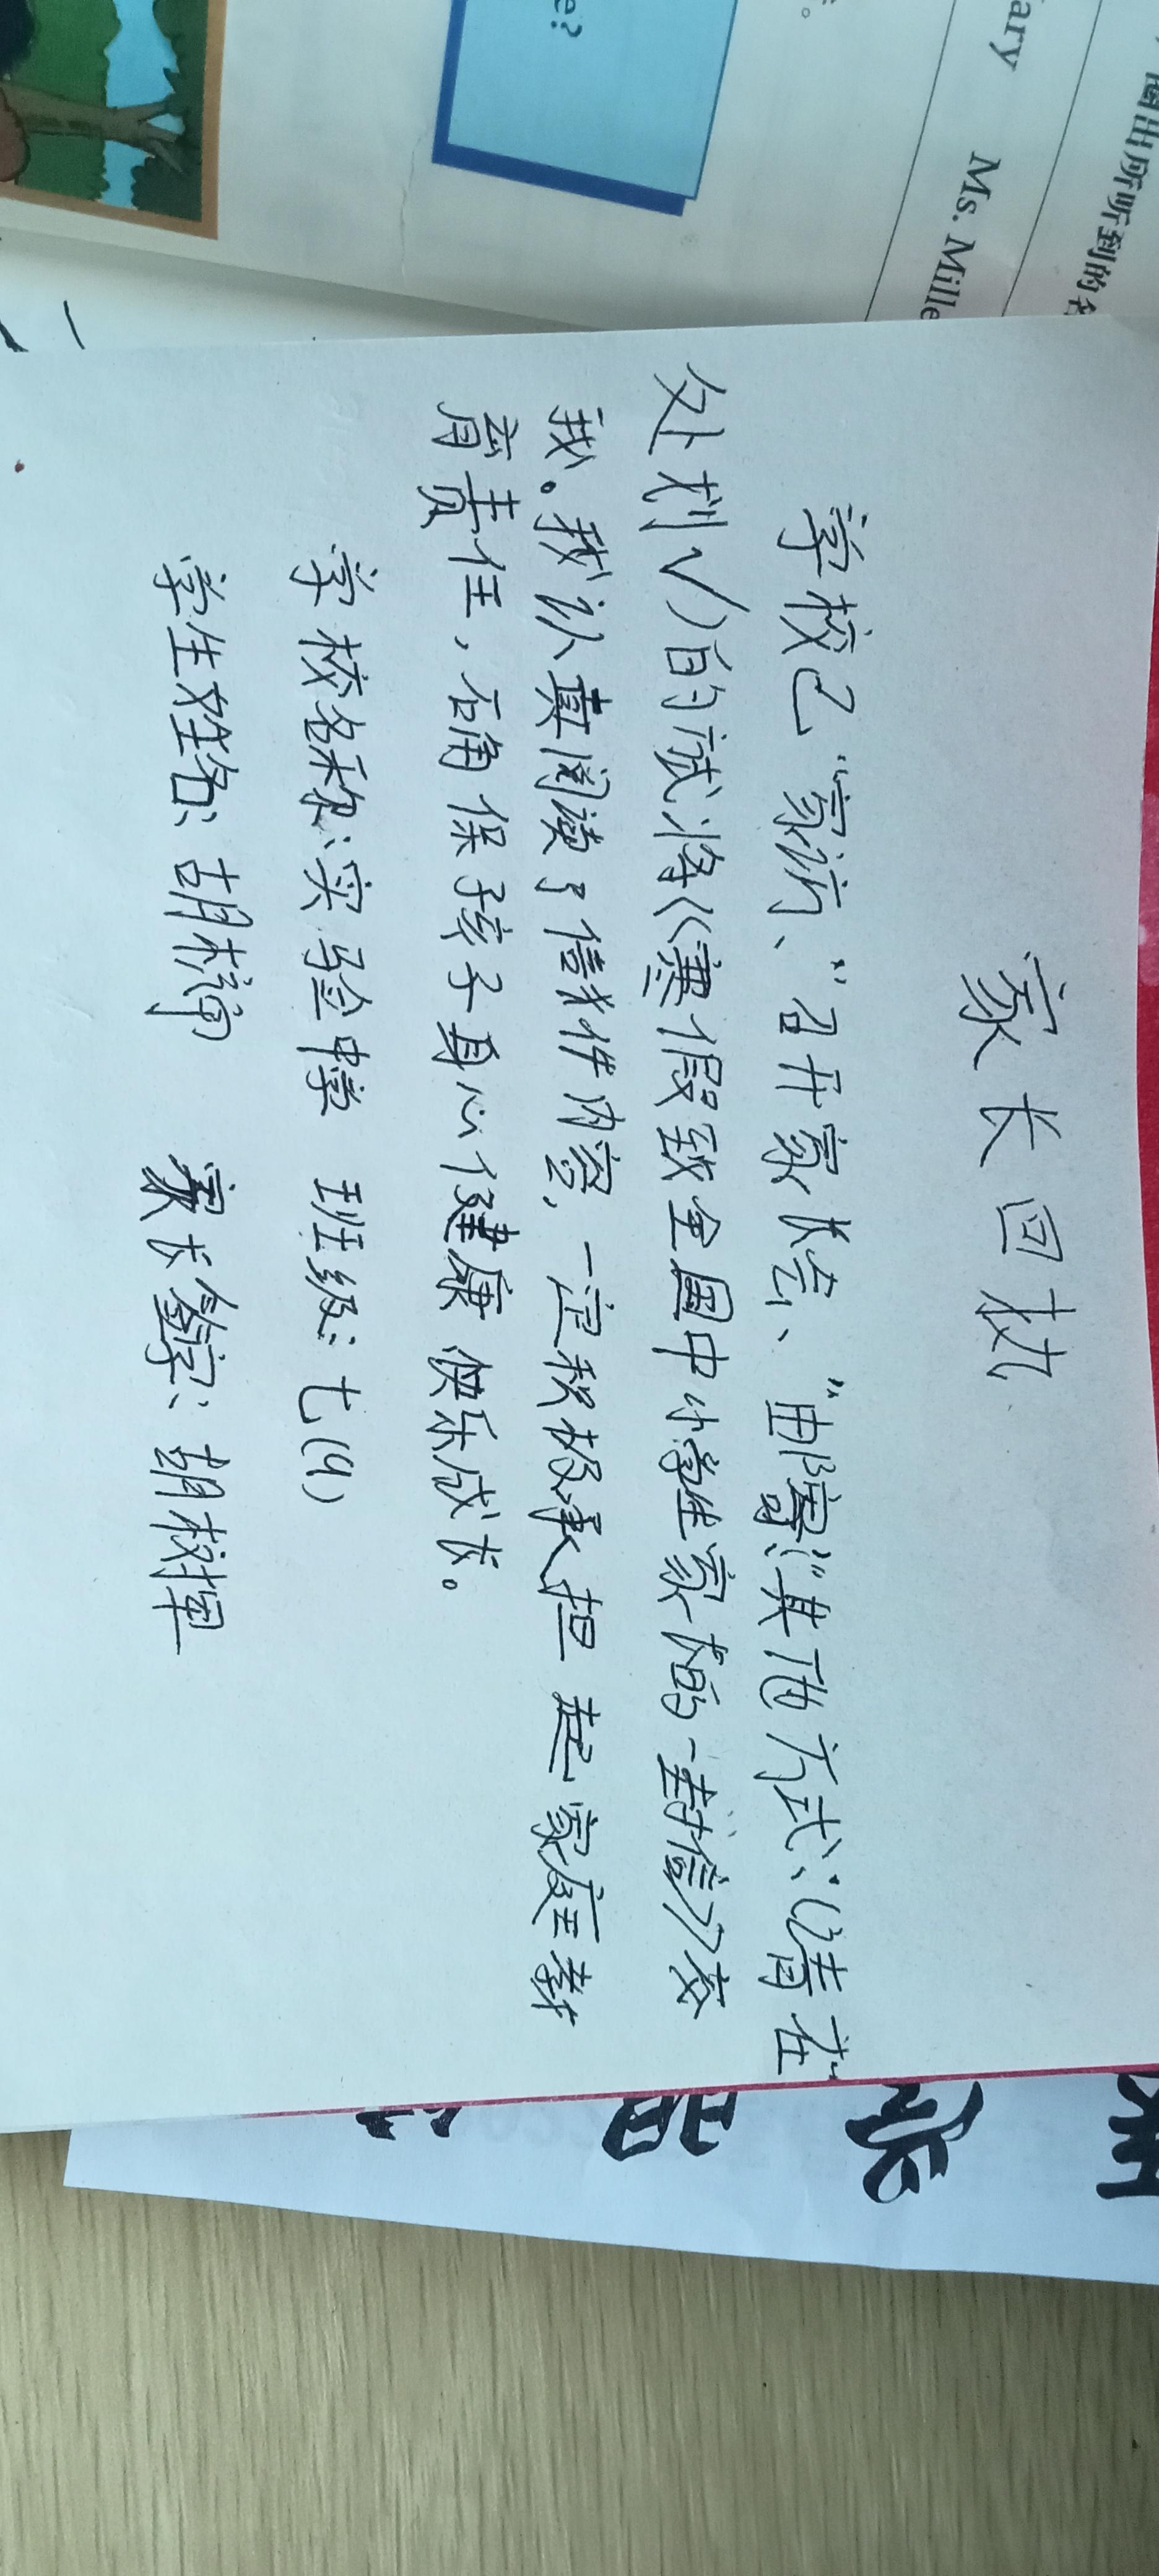 家长回执
学校已"家访、"召开家长会、"邮寄、"其他方式:(请在
处划√)的试将《寒假致全国中小学生家长的一封信》交
我。我认真阅读了信件内容,一定积极承担起家庭教
育责任,确保孩子身心健康快乐成长。
学校名称:实验中学 班级:七(9)
学生姓名:胡 家长签字:胡
ary Ms. Mille
圈出所听到的名
e?